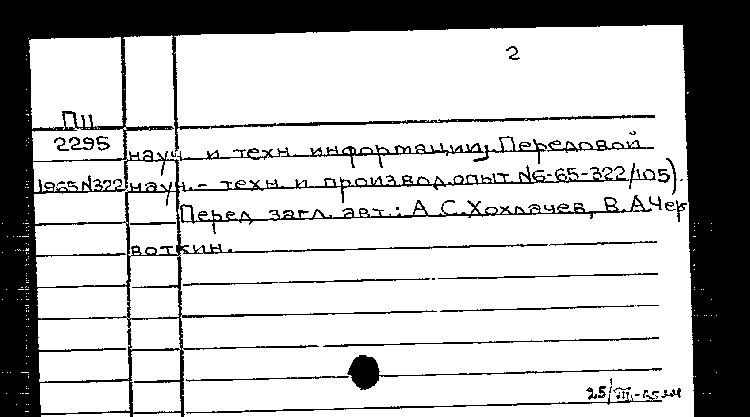 2
П11
2295
науч. и техн. информации. Передовой
1965 N322 науч.- техн. и производ. опыт. N6-65-322/105).
Перед загл. авт.: А.С. Хохлачев, В.А. Чер
воткин.
25/III-65